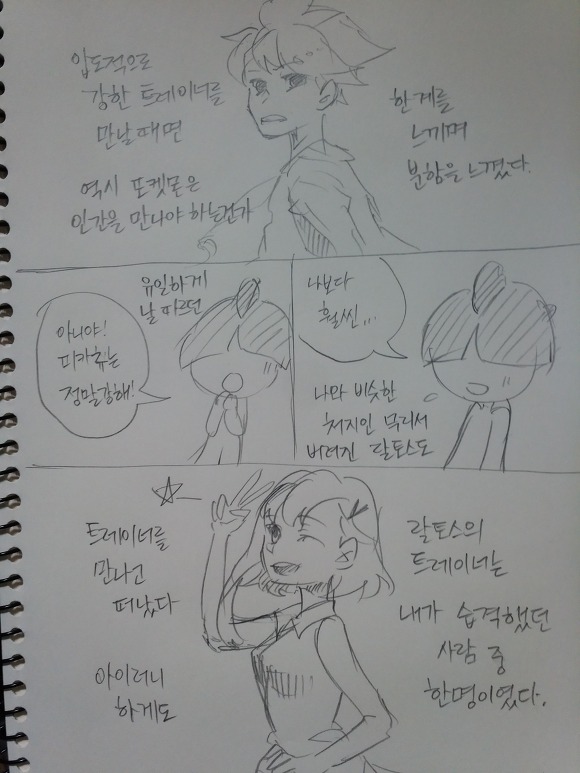 압도적으로
강한 트레이너를
만날때면
역시 포켓몬은
인간을 만나야 하는건가
한계를
느끼며
분함을 느꼈다.
유일하게
날 따르던
아니야!
피카츄는
정말강해!
나보다
훨씬...
나와 비슷한
처지인 무리서
버려진 랄토스도
트레이너를
만나고
떠났다
아이러니
하게도
랄토스의
트레이너는
내가 습격했던
사람 중
한명이였다.